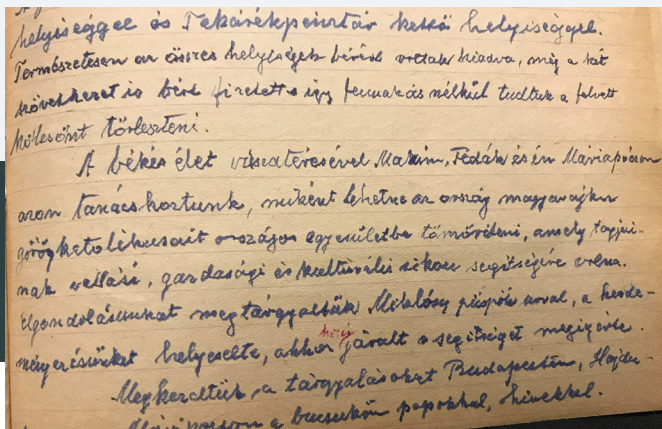 helyiséggel és Takarékpénztár kettő helyiséggel.
Természetesen az összes helyiségek bérbe voltak kiadva, még a két
szövetkezet is bért fizetett s így fennakás nélkül tudtuk a felvett
kölcsönt törleszteni.
A békés élet visszatérésével Maxim, Fedák és én Máriapócson
azon tanácskoztunk, miként lehetne az ország magyarajku
görögkatolikusait országos egyesületbe tömöríteni, amely tagjai-
nak vallási, gazdasági és kulturális síkon segítségére volna.
Elgondolásunkat megtárgyaltuk Miklósy püspök urral, a kezde-
ményezésünket helyeselte, ahhoz járult s segítséget megigérte.
Megkezdtük a tárgyalásokat Budapesten, Hajdu-
a bucsukon papokkal, hivekkel.